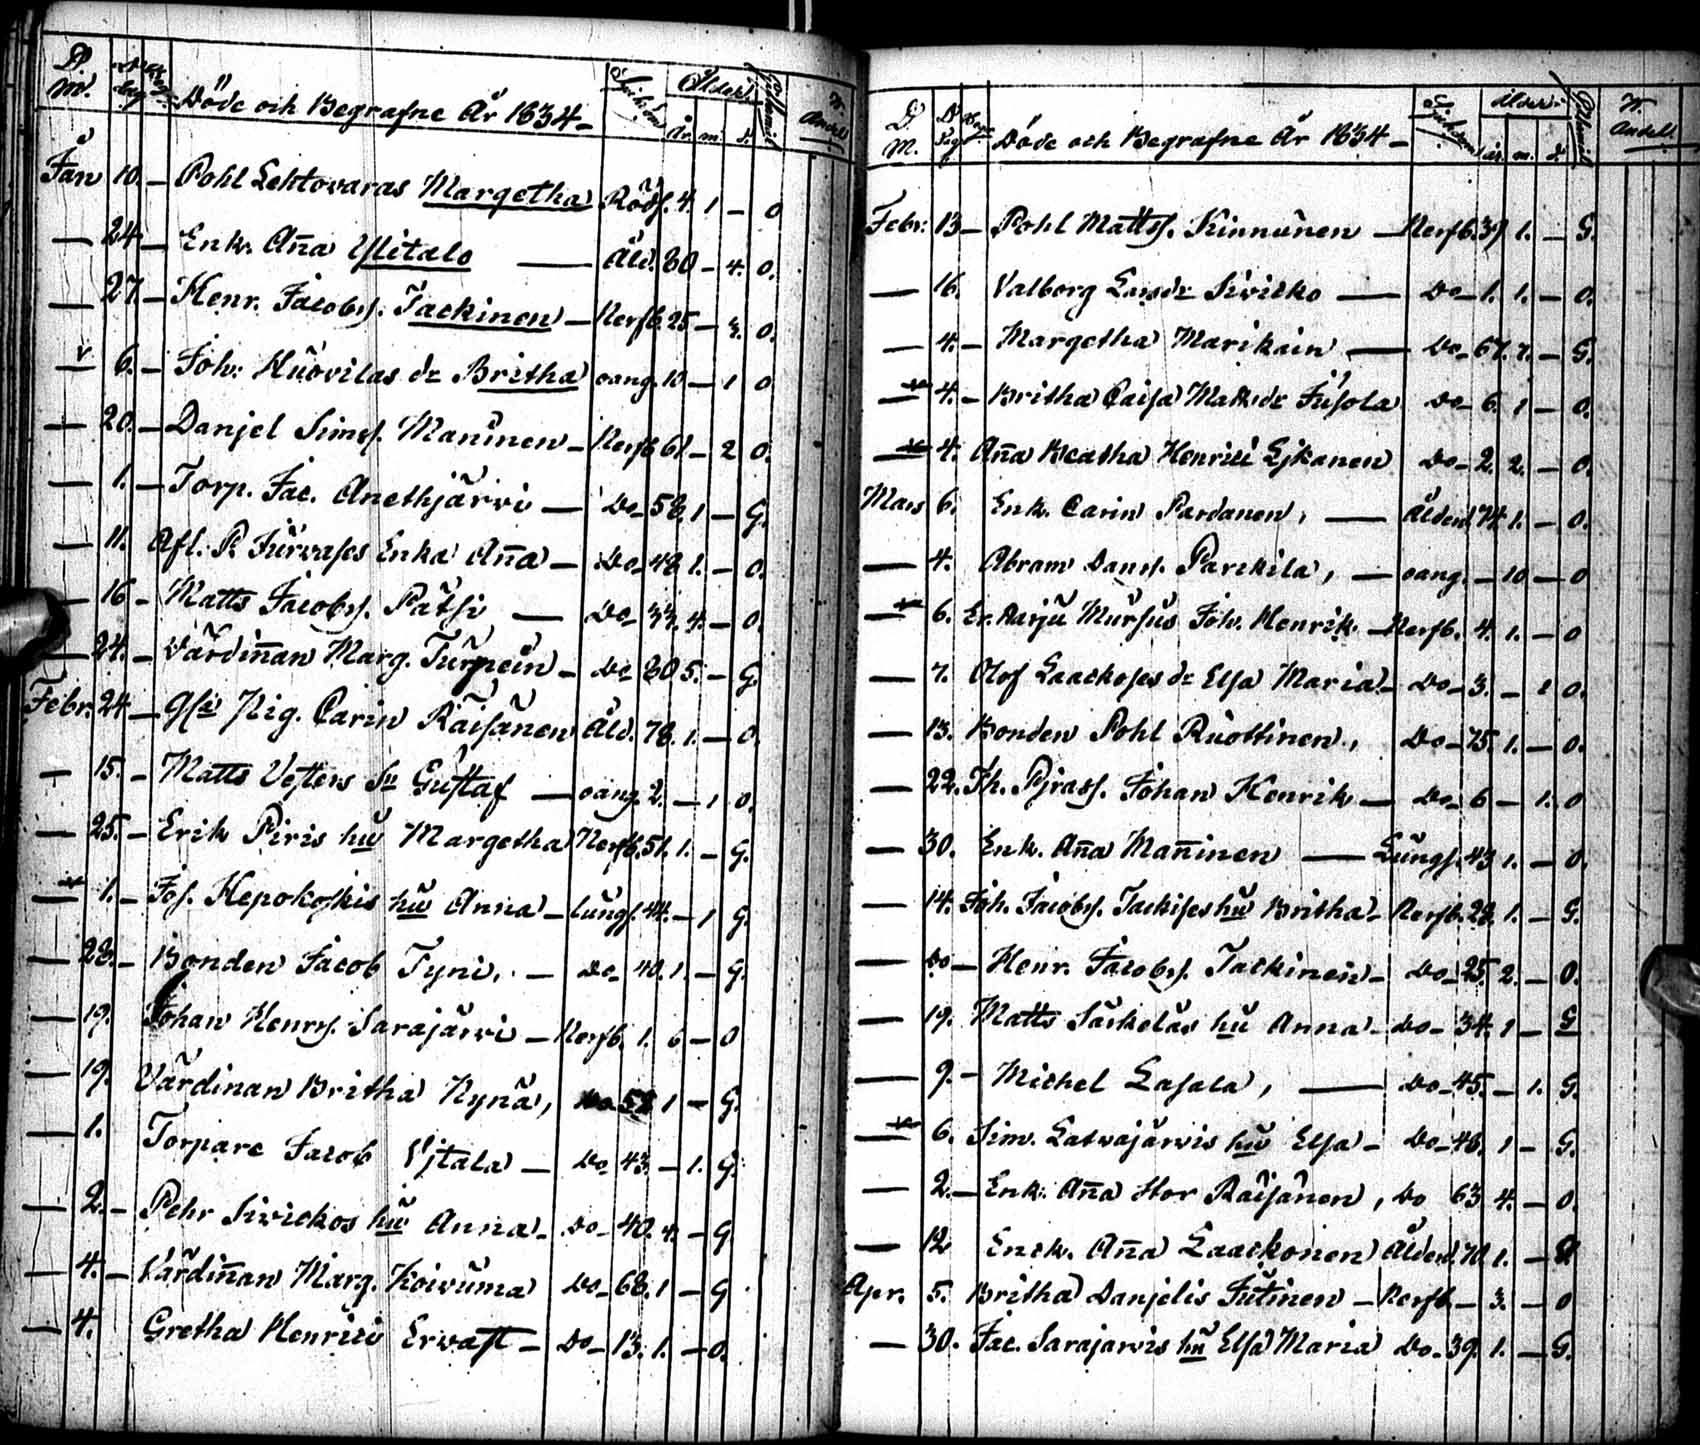 D. M. Död dag Döde och Begrafne År 1834 – Sjukdom Ålder år. m. d. Civilstånd W. Andel
Jan 10. – Pohl Lehtovaras Margetha Röds. 4. 1 – O
— 24. – Enk. Aña Ylitalo — Åld. 80 – 4. O.
— 27. – Henr. Jacobs. Tackinen – Nerfb. 25 – 3. O.
— 6. – Joh: Huovilas dr Britha oang. 10 – 1 O
— 20. – Danjel Sims. Maninen – Nerfb 61 – 2 O.
— 1. – Torp. Jac. Anethjärvi — Do – 58. 1 – G.
— 11. Afl. P. Turvases Enka Aña – Do – 48 1. – O.
— 16 – Matts Jacobs. Pätsi — Do – 33. 4. – O.
— 24. – Värdiñan Marg. Turpein – Do 80 5. – G.
Febr. 24 – Pig. Carin Räisänen Åld. 78. 1. – O.
— 15. – Matts Vesters Sn Gustaf — oang. 2. – 1 O.
— 25. – Erik Piris hu Margetha Nerfb. 51. 1. – G.
— 1. – Jos. Hepokoskis hu Anna – Lungs. 44. – 1 G.
— 28. – Bonden Jacob Tyni. – Do – 40. 1. – G.
— 19. Johan Henrs. Sarajärvi – Nerfb. 1. 6 – O
— 19. Värdinan Britha Nynä, Do 58 1 – G.
— 1. Torpare Jacob Ujtala – Do – 43. – 1. G.
— 2. – Pehr Sivickos hu Anna – Do – 40. 4. – G
— 4. – Värdiñan Marg. Koivuma Do – 68. 1 – G
— 4. Gretha Henrici Ervast – Do – 13. 1. – O.
D. M. D. Dag Döde och Begrafne År 1834 – Sjukdom Ålder år. m. d. W. Andel
Febr: 13 – Pohl Matts. Kinnunen – Nerfb. 39 1. – G.
— 16. Valborg Larsdr Sivicko — Do – 1. 1. – O.
— 4. – Margetha Marikain — Do – 67. 7. – G.
— 4. – Britha Caisa Mattsdr Jusola Do – 6. 1 – O.
— 4. Aña Beatha Henrici Lykanen Do – 2. 2. – O.
Mars 6. Enk. Carin Pardanen, — Ålderd. 74. 1. – O.
— 4. Abram Dans. Parckila, – oang. – 10 – O
— 6. Er. Marju Mursus Joh. Henrik – Nerfb. 4. 1. – O
— 7. Olof Laackoses dr Elsa Maria – Do – 3. – 1 O.
— 13. Bonden Pohl Ruottinen, Do – 75. 1. – O.
— 22. Johan Henrik — Do – 6 – 1. O
— 30. Enk. Aña Mañinen — Lungs. 43 1. – O.
— 14. Joh. Jacobs. Tackises hu Britha – Nerfb. 28. 1. – G.
— Do – Henr. Jacobs. Tackinen – Do – 25. 2. – O.
— 19. Matts Särkeläs hu Anna – Do – 34. 1 – G
— 9. – Michel Lasala, — Do – 45. – 1. G.
— 6. Sim. Latvajärvis hu Elsa – Do – 48. 1 – G.
— 2. – Enk. Aña Stor Räisänen, Do 63 4. – O.
— 12 Enck. Aña Laackonen Ålderd. 70. 1. –
Apr. 5. Britha Danjelis Jutinen – Nerfb. – 3. – O
— 30. Jac. Sarajarvis hu Elsa Maria Do – 39. 1. – G.